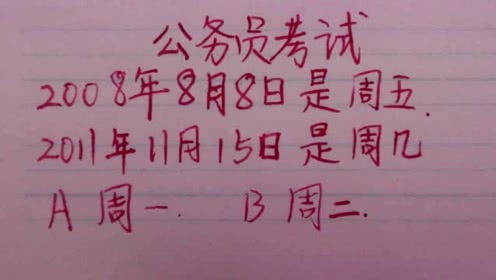 公务员考试
2008年8月8日是周五.
2011年11月15日是周几
A 周一. B 周二.